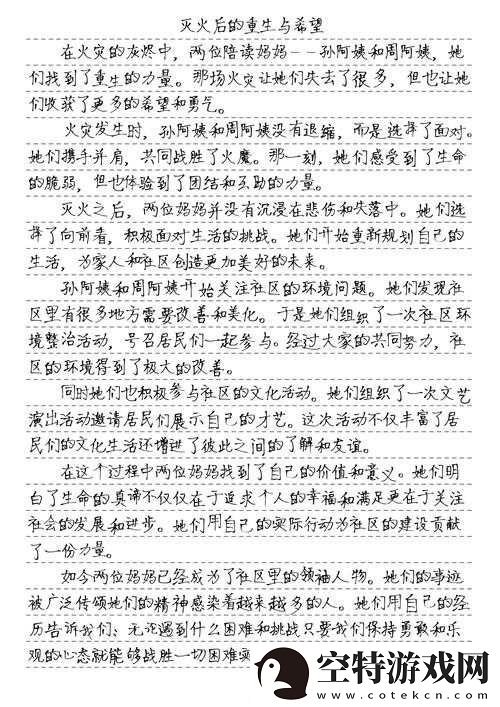 灭火后的重生与希望
在火灾的灰烬中，两位陪读妈妈--孙阿姨和周阿姨，她
们找到了重生的力量。那场火灾让她们失去了很多，但也让她
们收获了更多的希望和勇气。
火灾发生时，孙阿姨和周阿姨没有退缩，而是选择了面对。
她们携手并肩，共同战胜了火魔。那一刻，她们感受到了生命
的脆弱，但也体验到了团结和互助的力量。
灭火之后，两位妈妈并没有沉浸在悲伤和失落中。她们选
择了向前看，积极面对生活的挑战。她们开始重新规划自己的
生活，为家人和社区创造更加美好的未来。
孙阿姨和周阿姨开始关注社区的环境问题。她们发现社
区里有很多地方需要改善和美化。于是她们组织了一次社区环
境整治活动，号召居民们一起参与。经过大家的共同努力，社
区的环境得到了极大的改善。
同时她们也积极参与社区的文化活动。她们组织了一次文艺
演出活动邀请居民们展示自己的才艺。这次活动不仅丰富了居
民们的文化生活还增进了彼此之间的了解和友谊。
在这个过程中两位妈妈找到了自己的价值和意义。她们明
白了生命的真谛不仅仅在于追求个人的幸福和满足更在于关注
社会的发展和进步。她们用自己的实际行动为社区的建设贡献
了一份力量。
如今两位妈妈已经成为了社区里的领袖人物。她们的事迹
被广泛传颂她们的精神感染着越来越多的人。她们用自己的经
历告诉我们：无论遇到什么困难和挑战只要我们保持勇敢和乐
观的心态就能够战胜一切困难实
空特游戏网
www.cotekcn.com